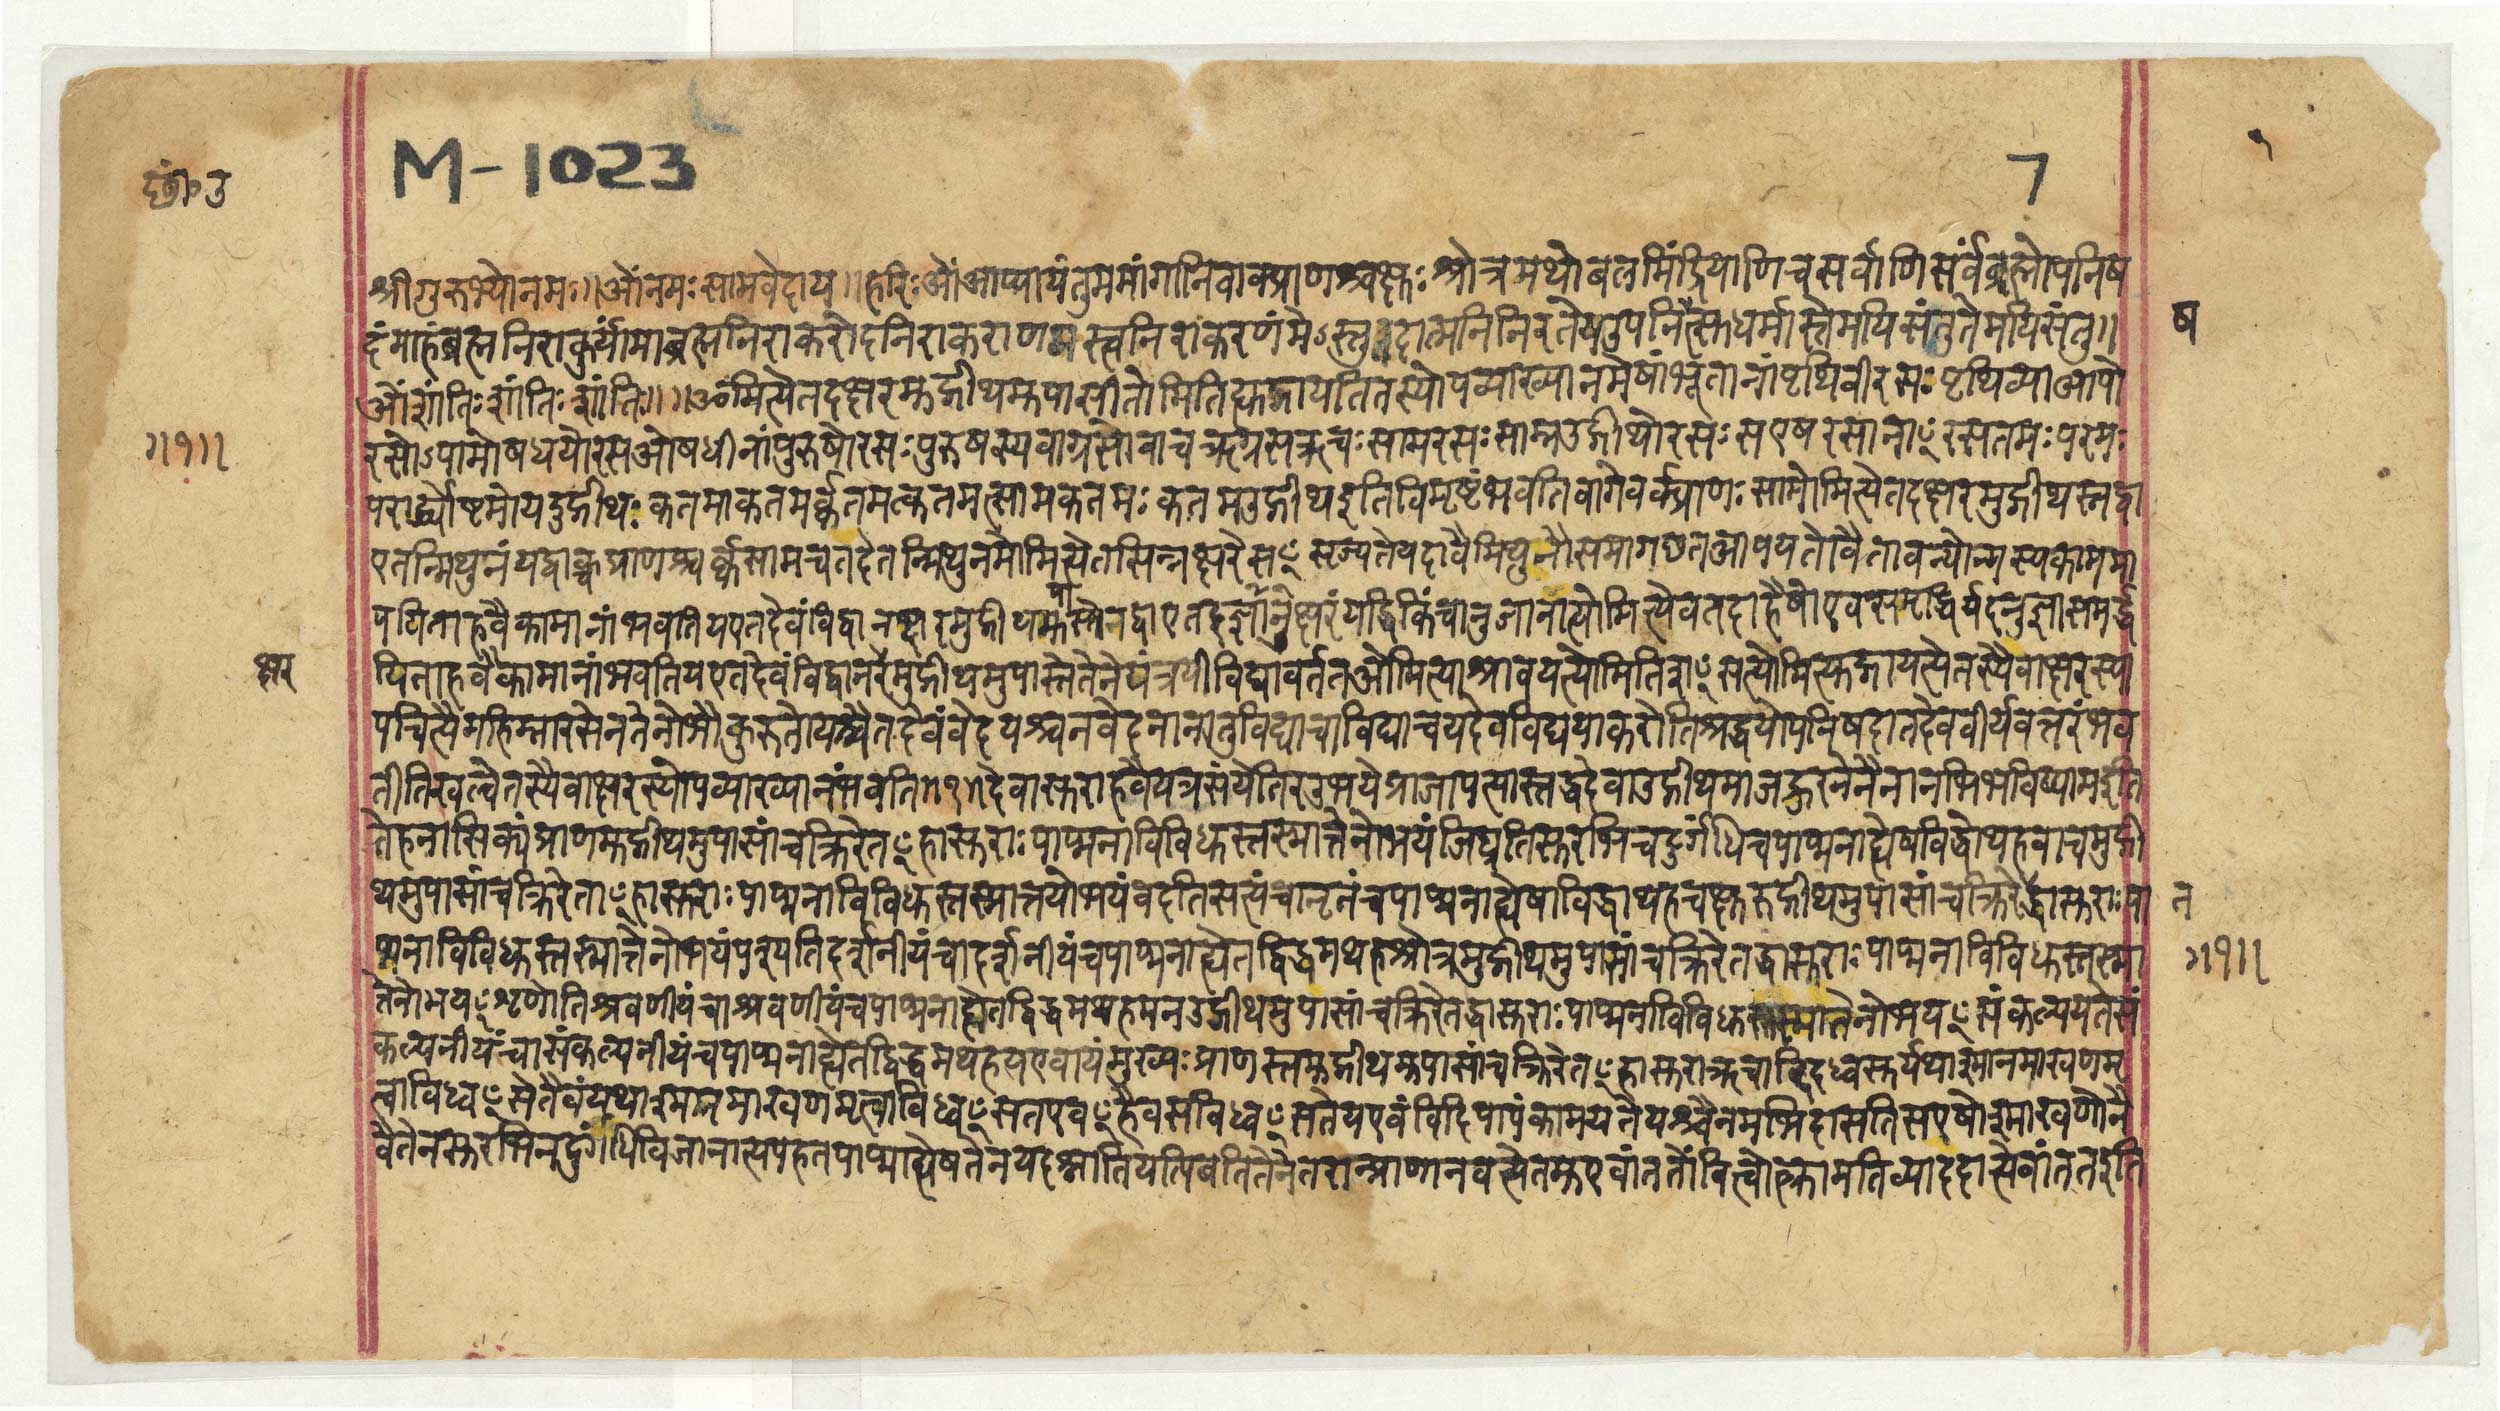 छां॰उ
M-1023
7
१
श्रीगुरुभ्योनमः॥ओंनमःसामवेदाय॥हरिःओंआप्यायंतुममांगानिवाक्प्राणश्चक्षुःश्रोत्रमथोबलमिंद्रियाणिचसर्वाणिसर्वंब्रह्मोपनिष
दंमाहंब्रह्मनिराकुर्यांमामाब्रह्मनिराकरोदनिराकरणमस्त्वनिराकरणंमेऽस्तुतदात्मनिनिरतेयउपनित्सुधर्मास्तेमयिसंतुतेमयिसंतु॥
ष
ओंशांतिःशांतिःशांतिः॥॥ॐमित्येतदक्षरमुद्गीथमुपासीतोमितिह्युद्गायतितस्योपव्याख्यानमेषांभूतानांपृथिवीरसःपृथिव्याआपो
॥१॥
रसोऽपामोषधयोरसओषधीनांपुरुषोरसःपुरुषस्यवाग्रसोवाचऋग्रसऋचःसामरसःसाम्नउद्गीथोरसःसएषरसानाꣳरसतमःपरमः
परार्द्ध्योष्टमोयदुद्गीथःकतमाकतमर्क्कतमत्कतमत्सामकतमःकतमउद्गीथइतिविमृष्टंभवतिवागेवर्क्प्राणःसामोमित्येतदक्षरमुद्गीथस्तद्वा
एतन्मिथुनंयद्वाक्चप्राणश्चर्क्चसामचतदेतन्मिथुनमोमित्येतस्मिन्नक्षरेसꣳसृज्यतेयदावैमिथुनौसमागछतआपयतोवैतावन्योन्यस्यकाममा
पयिताहवैकामानांभवतियएतदेवंविद्वानक्षरमुद्गीथमुपास्तेतद्वाएतदनुज्ञाक्षरंयद्धिकिंचानुजानात्योमित्येवतदाहैषोएवसमृद्धिर्यदनुज्ञासमर्द्ध
क्षर
यिताहवैकामानांभवतियएतदेवंविद्वानमुद्गीथमुपास्तेतेनेयंत्रयीविद्यावर्ततओमित्याश्रावयत्योमितिशꣳसत्योमित्युद्गायत्येतस्यैवाक्षरस्या
पचित्यैमहिम्नारसेनतेनोभौकुरुतोयश्चैतदेवंवेदयश्चनवेदनानातुविद्याचाविद्याचयदेवविद्ययाकरोतिश्रद्धयोपनिषदातदेववीर्यवत्तरंभव
तीतिखल्वेतस्यैवाक्षरस्योपव्याख्यानंभवति॥१॥देवासुराहवैयत्रसंयेतिरउभयेप्राजापत्यास्तद्धदेवाउद्गीथमाजह्रुरनेनैनानभिभविष्यामइति
तेहनासिक्यंप्राणमुद्गीथमुपासांचक्रिरेतꣳहासुराःपाप्मनाविविधुस्तस्मात्तेनोभयंजिघ्रतिसुरभिचदुर्गंधिचपाप्मनाह्येषविद्धोथहवाचमुद्गी
थमुपासांचक्रिरेताꣳहासुराःपाप्मनाविविधुस्तस्मात्तयोभयंवदतिसत्यंचानृतंचपाप्मनाह्येषाविद्धाथहचक्षुरुद्गीथमुपासांचक्रिरेद्धासुराःपा
त
प्मनाविविधुस्तस्मात्तेनोभयंपश्यतिदर्शनीयंचादर्शनीयंचपाप्मनाह्येतद्विद्धमथहश्रोत्रमुद्गीथमुपासांचक्रिरेतद्धासुराःपाप्मनाविविधुस्तस्मा
॥१॥
त्तेनोभयꣳशृणोतिश्रवणीयंचाश्रवणीयंचपाप्मनाह्येतद्विद्धमथहमनउद्गीथमुपासांचक्रिरेतद्धासुराःपाप्मनाविविधुस्तस्मात्तेनोभयꣳसंकल्पयतेसं
कल्पनीयंचासंकल्पनीयंचपाप्मनाह्येतद्विद्धमथहयएवायंमुख्यःप्राणस्तमुद्गीथमुपासांचक्रिरेतꣳहासुराऋत्वाविदध्वंसुर्यथाश्मानमाखणमृ
त्वाविध्वꣳसेतैवंयथाश्मानमाखणमृत्वाविध्वꣳसतएवꣳहैवसविध्वꣳसतेयएवंविदिपापंकामयतेयश्चैनमभिदासतिसएषोश्माखणोनै
वैतेनसुरभिनदुर्गंधिविजानात्यपहतपाप्माह्येषतेनयदश्नातियत्पिबतितेनेतरान्प्राणानवत्येतमुएवांततोवित्त्वोत्क्रामतिव्याददात्येवांततइति